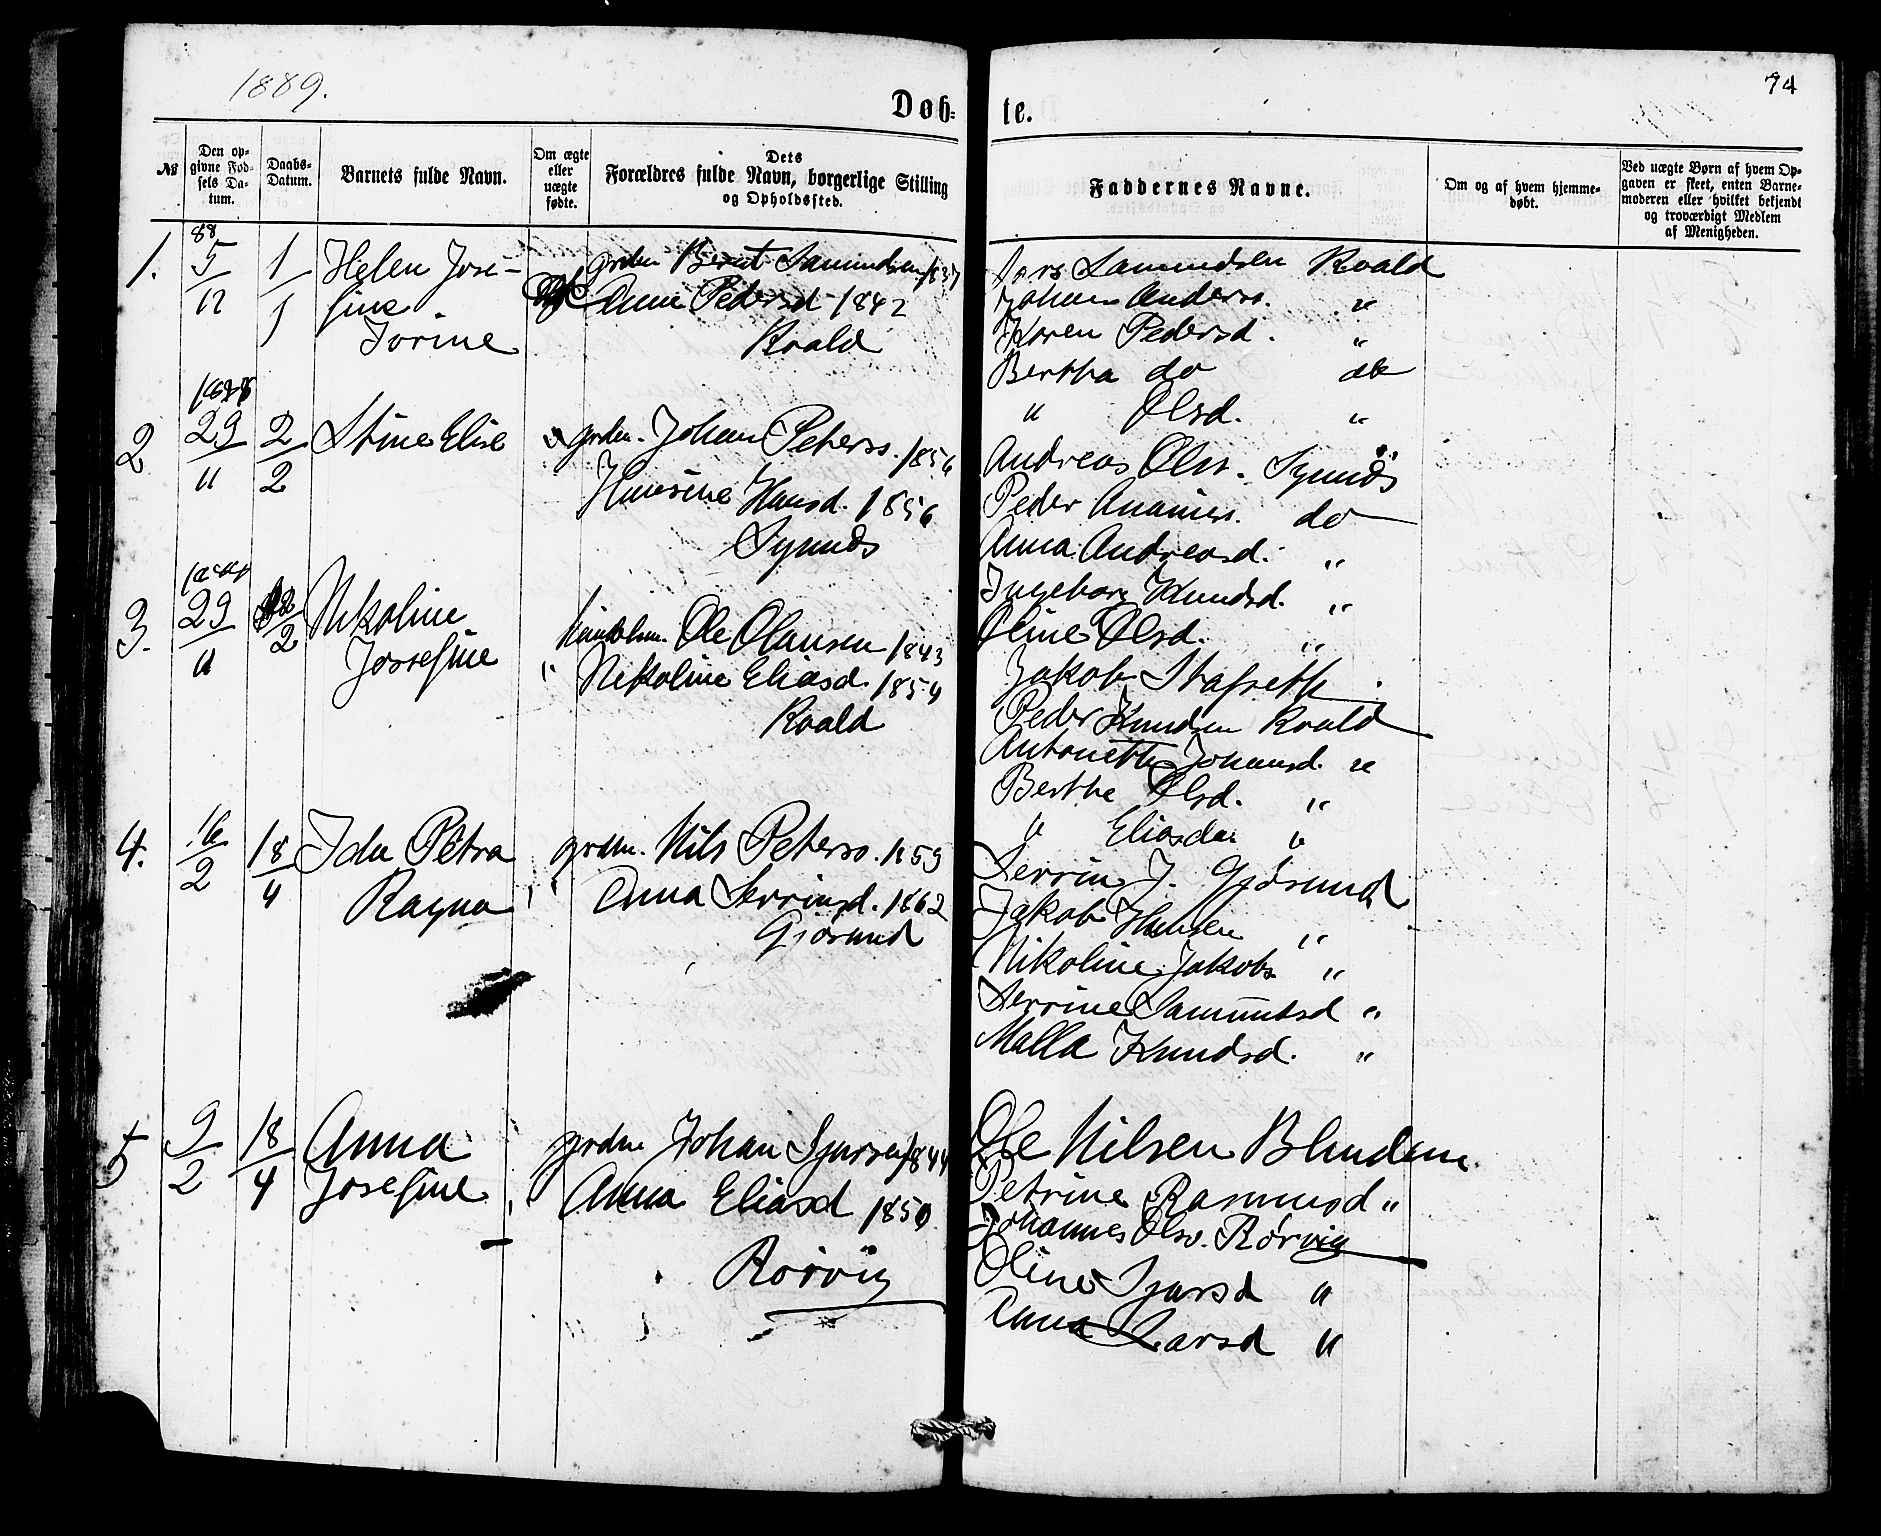 1889.
74
Døb-
te.
№
Den op-
givne Fød-
sels Da-
tum.
Daabs-
Datum.
Barnets fulde Navn.
Om ægte
eller
uægte
fødte.
Dets
Forældres fulde Navn, borgerlige Stilling
og Opholdssted.
Faddernes Navne.
Om og af hvem hjemme-
døbt.
Ved uægte Børn af hvem Op-
gaven er skeet, enten Barne-
moderen eller hvilket bekjendt
og troværdigt Medlem
af Menigheden.
1.
88
5/12
1/1
Helen Jose-
fine
Jorine
grdm Bernt Samundsen 1837
Anne Pedersd 1842
Roald
Lars Samundsen Roald
Johan Anderss. "
Karen Pedersd. "
Bertha do do
" Olsd. "
2
1888
29/11
2/2
Stine Elise
" grdm. Johan Peters. 1856
Hansine Hansd. 1856
Synnæs
Andreas Ols. Synnæs
Peder Ananiss. do
Anna Andreasd. "
Ingeborg Knudsd. "
Oline Olsd. "
3.
1888
29/11
2/2
Nikoline
Jossefine
Ole Olausen 1843
" Nikoline Eliasd. 1854
Roald
Jakob Stafseth.
Peder Knudsen Roald
Antonette Johansd. "
Berthe Olsd. "
" Eliasdar "
4.
16/2
18/4
Ida Petra
Ragna
grdm. Nils Peters. 1859
" Anna Serrinsd. 1862
Gjøsund
Serrin J. Gjøsund
Jakob Hansen "
Nikoline Jakobs "
Serrine Samuntsd "
Malla Knudsd. "
5
9/2
18/4
Anna
Josefine
grdm Johan Sjursen 1844
" Anna Eliasd 1850
Rørvig
Ole Nilsen Blindem
Petrine Rasmusd "
Johannes Ols. Rørvig
Oline Sjursd "
Anna Larsd "